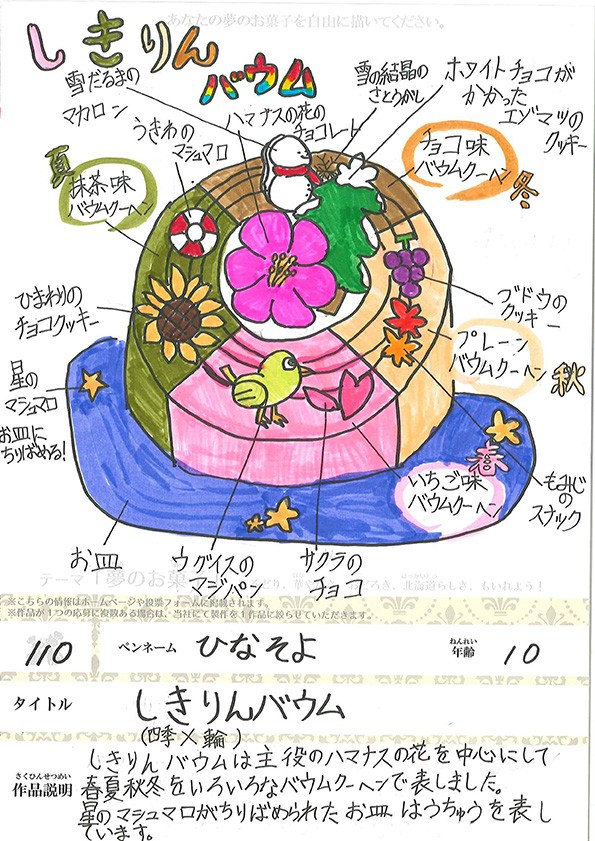 あなたの夢のお菓子を自由に描いてください。
しきりん
バウム
雪だるまの
マカロン
うきわの
マシュマロ
ハマナスの花の
チョコレート
雪の結晶の
さとうがし
ホワイトチョコが
かかった
エゾマツの
クッキー
夏
抹茶味
バウムクーヘン
チョコ味
バウムクーヘン
冬
ひまわりの
チョコクッキー
ブドウの
クッキー
プレーン
バウムクーヘン
秋
星の
マシュマロ
お皿に
ちりばめる!
春
いちご味
バウムクーヘン
もみじ
の
スナック
お皿
ウグイスの
マジパン
サクラの
チョコ
テーマ「夢のお菓
北海道らしさ、もいれよう!
※こちらの情報はホームページや投票フォームに掲載されます。
※作品が1つの応募に複数ある場合は、当社にて製作を1作品に絞らせていただきます。
110 ペンネーム ひなそよ ねんれい 年齢 10
タイトル しきりんバウム
(四季×輪)
さくひんせつめい
作品説明
しきりんバウムは主役のハマナスの花を中心にして
春夏秋冬をいろいろなバウムクーヘンで表しました。
星のマシュマロがちりばめられたお皿はうちゅうを表し
ています。